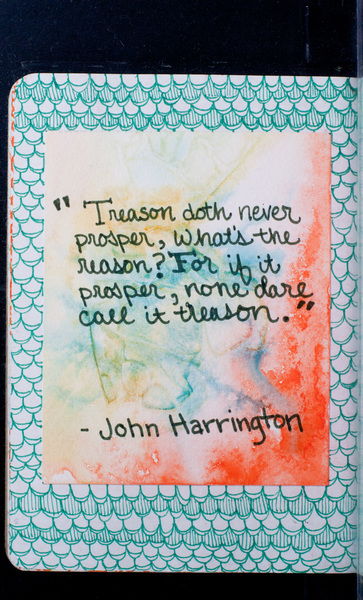 " Treason doth never
prosper, what's the
reason? For if it
prosper, none dare
call it treason."
- John Harrington